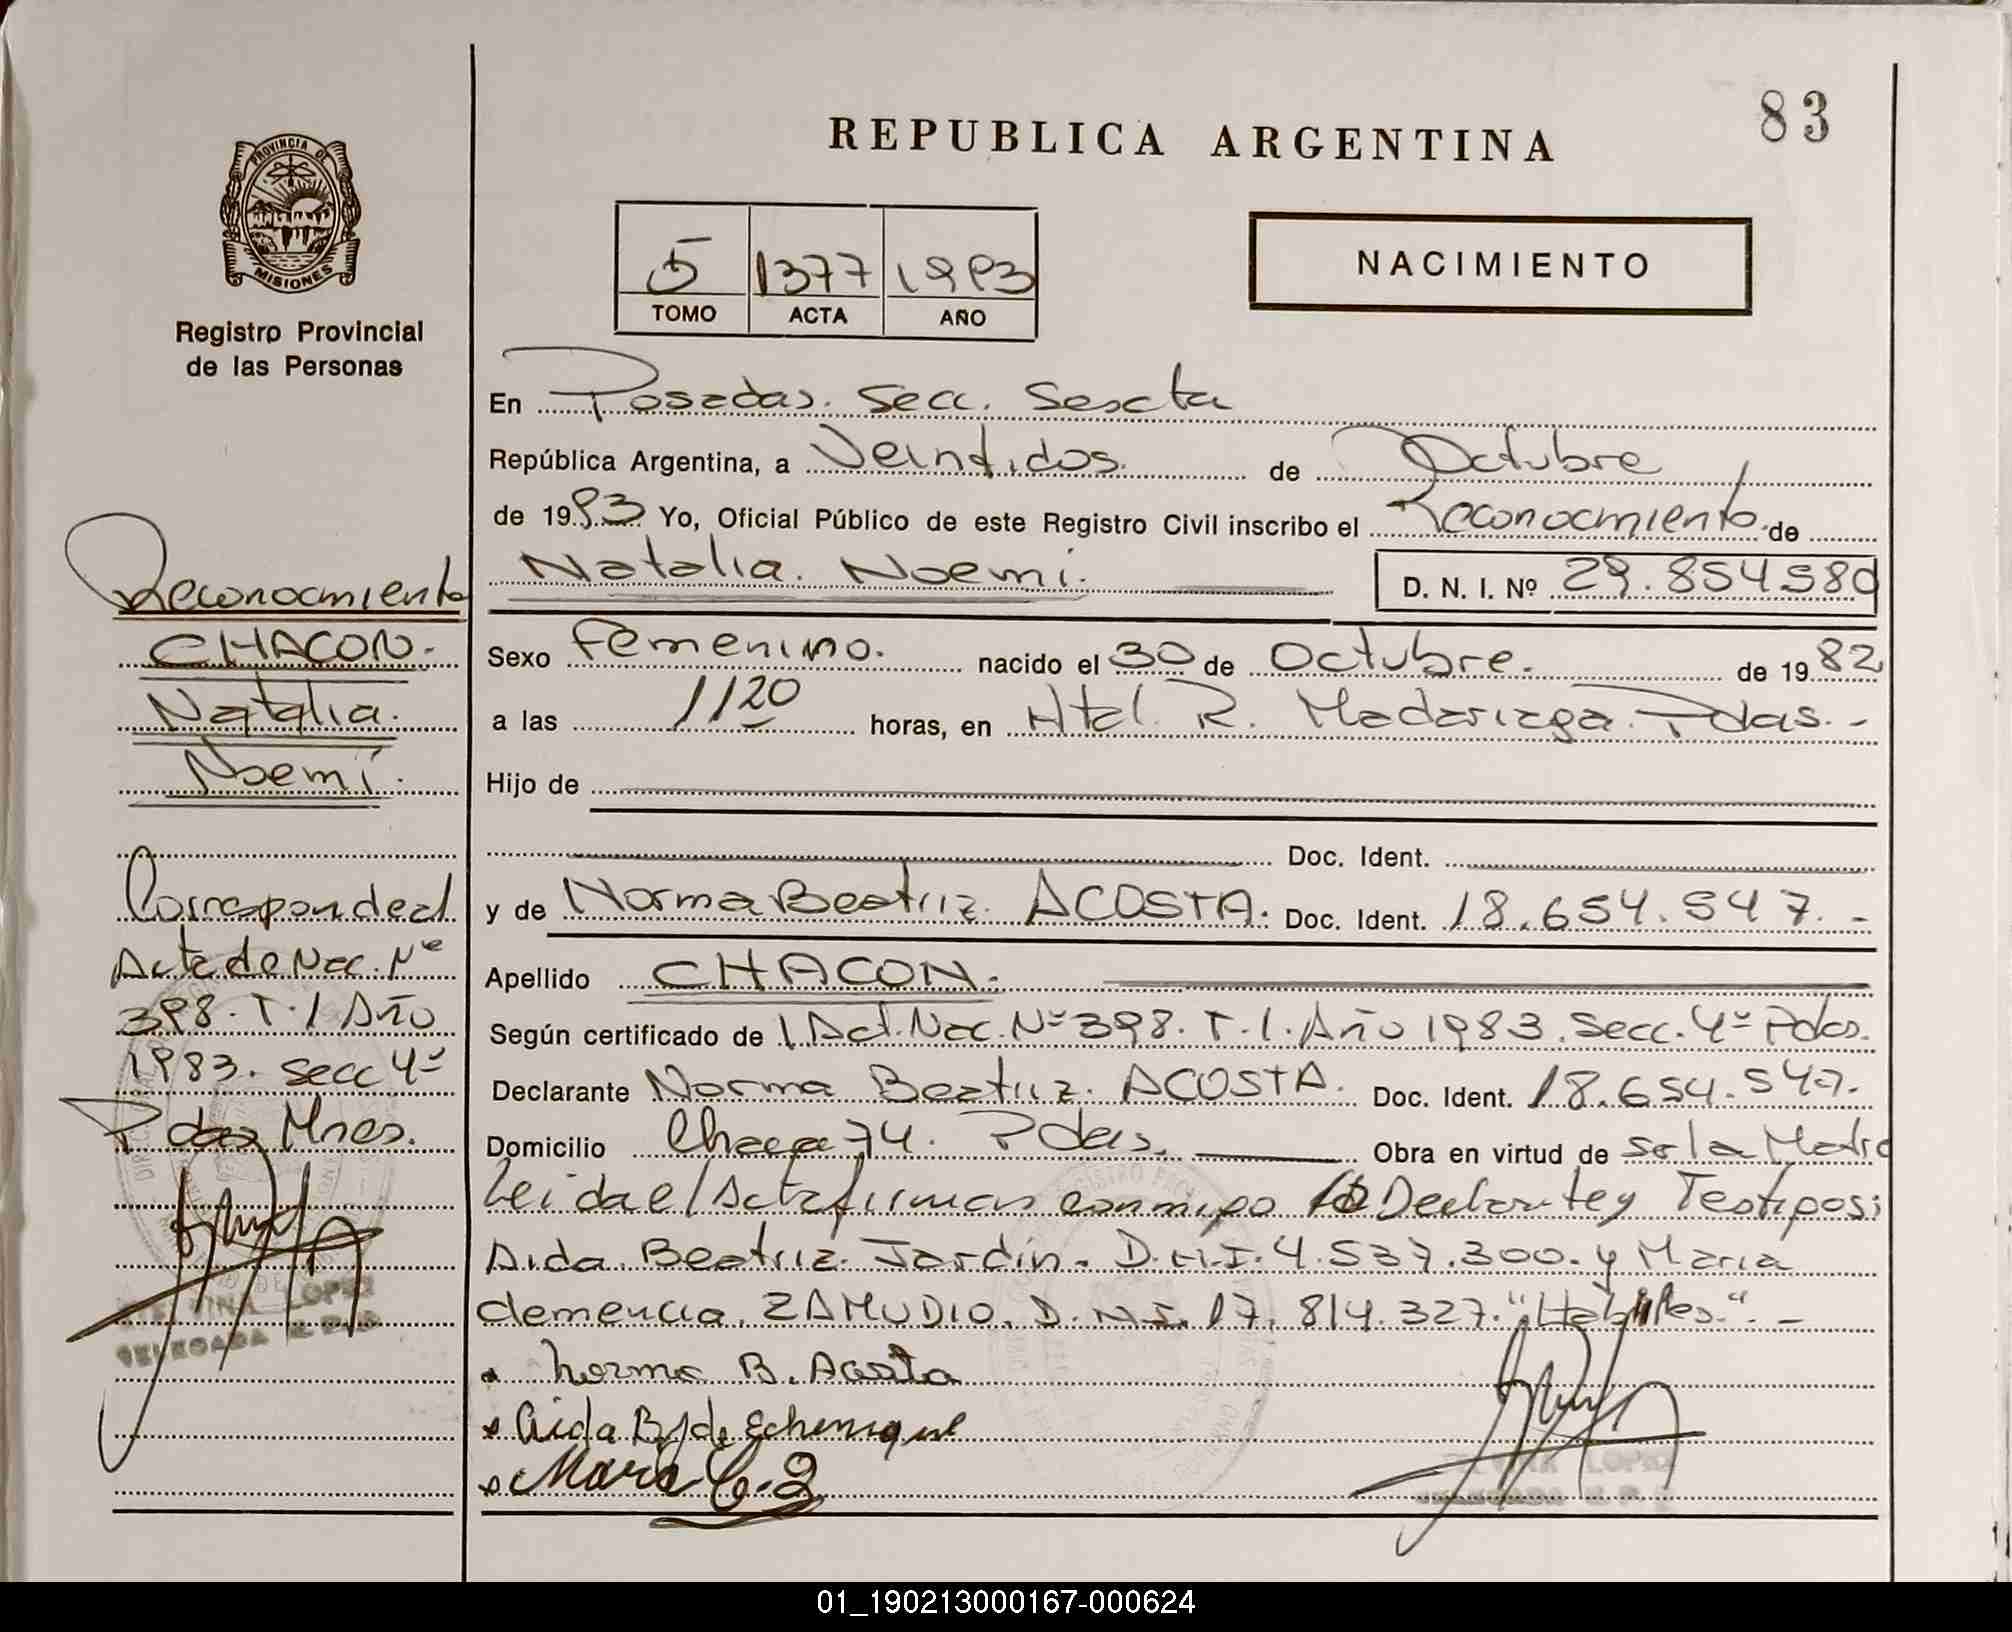 83
REPUBLICA ARGENTINA
PROVINCIA DE
MISIONES
Registro Provincial
de las Personas
5 1377 1983
TOMO ACTA AÑO
NACIMIENTO
En Posadas. Secc. Sexta
República Argentina, a Veintidos de Octubre
de 1983 Yo, Oficial Público de este Registro Civil inscribo el Reconocimiento de
Natalia. Noemi. D. N. I. Nº 29.854580
Sexo Femenino. nacido el 30 de Octubre. de 1982
a las 1120 horas, en Htal. R. Madariaga. Pdas. -
Hijo de
Doc. Ident.
y de Norma Beatriz. ACOSTA. Doc. Ident. 18.654.547. -
Apellido CHACON.
Según certificado de 1 Act. Nac. Nº 398. T. 1. Año 1983. Secc. 4º Pdas.
Declarante Norma Beatriz. ACOSTA. Doc. Ident. 18.654.547.
Domicilio Chacra 74. Pdas. Obra en virtud de ser la Madre
Leida el Acta firman conmigo la Declarante y Testigos:
Aida. Beatriz. Jardín. D.N.I. 4.537.300. y Maria
Clemencia. ZAMUDIO. D.N.I. 17.814.327. "Habiles". -
Norma B. Acosta
Aida B J de Echenique
Maria C. Z
Reconocimiento
CHACON.
Natalia.
Noemi.
Corresponde al
Acta de Nac. Nº
398. T. 1 Año
1983. Secc 4º
Pdas Mnes.
LOPEZ
DELEGADA
01_190213000167-000624